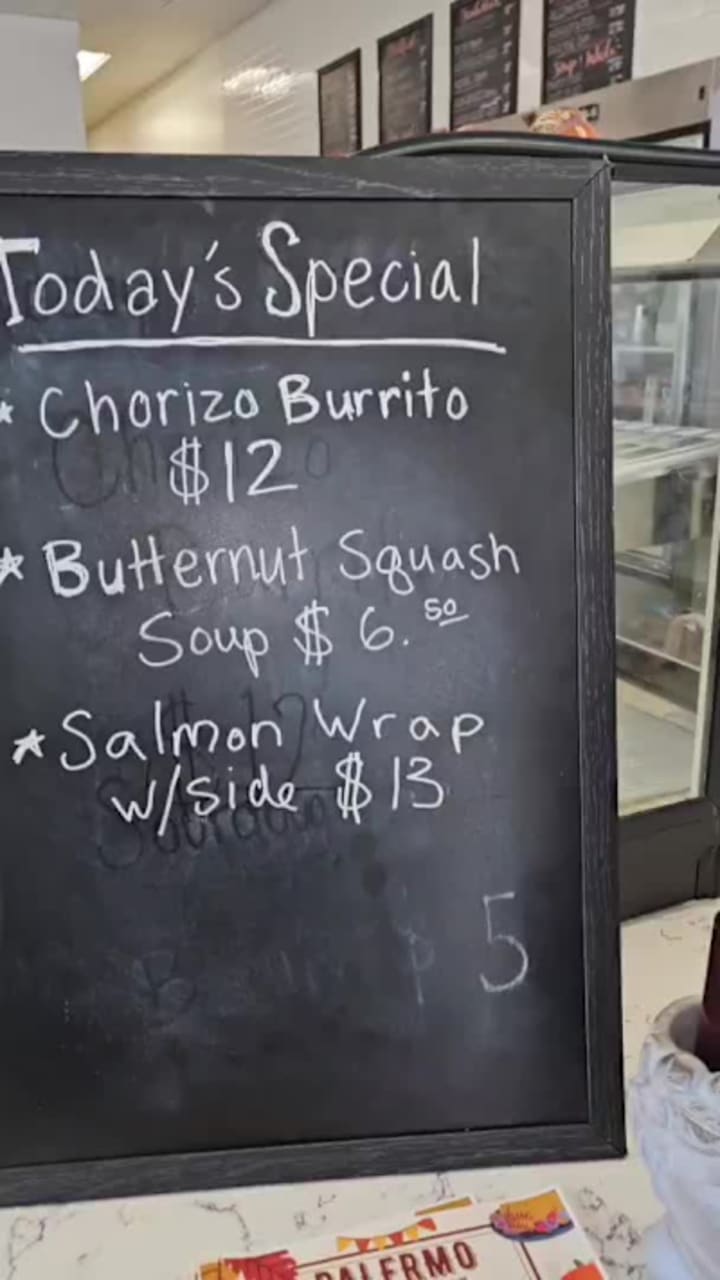 Today's Special
* Chorizo Burrito
$12
* Butternut Squash
Soup $ 6. 50
* Salmon Wrap
w/side $ 13
5
PALERMO